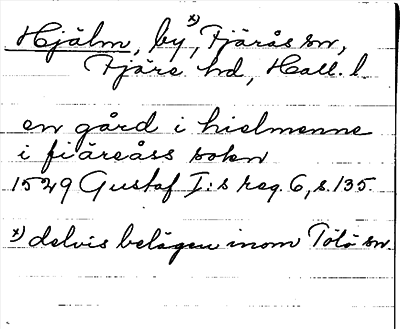 Hjälm, by x), Fjärås sn,
Fjäre hd, Hall. l.
en gård i hielmenne
i fiäreåss sokn
1529 Gustaf I:s reg. 6, s. 135.
x) delvis belägen inom Tölö sn.